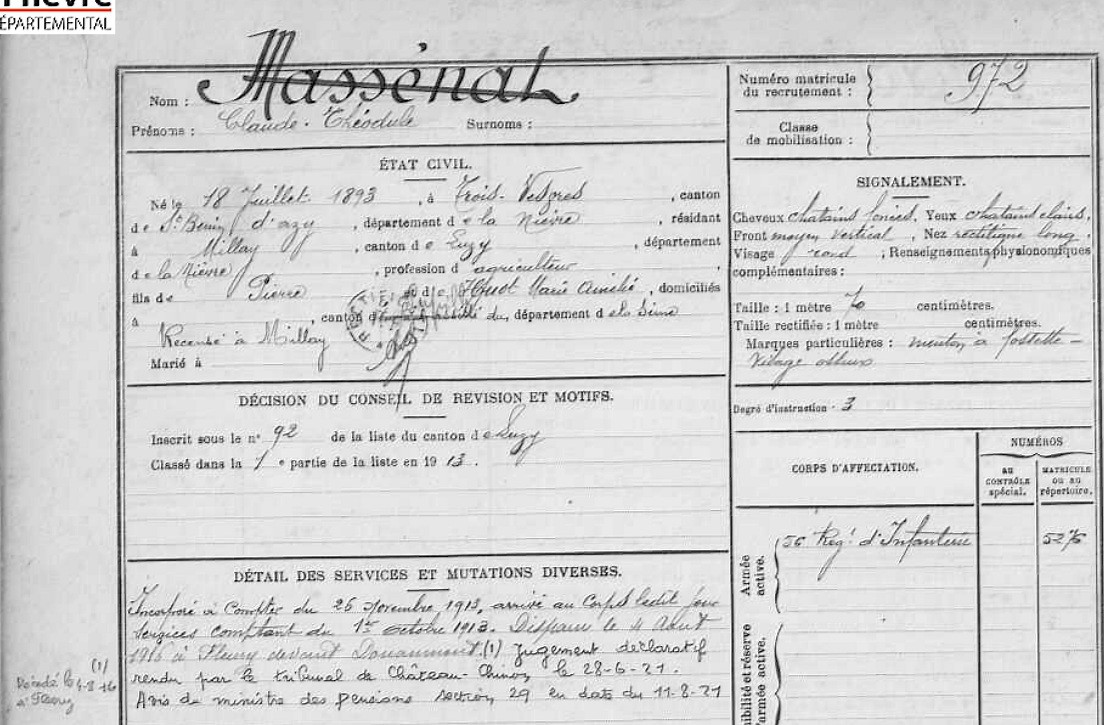 Nièvre
DÉPARTEMENTAL
Nom : Massénat
Prénoms : Claude. Théodule Surnoms :
ÉTAT CIVIL.
Né le 18 Juillet 1893 , à Trois-Vesvres , canton
de St Benin d'azy , département de la Nièvre , résidant
à Millay , canton de Luzy , département
de la Nièvre , profession d agriculteur ,
fils de Pierre et de Huot Marie , domiciliés
à , canton du , département de la Nièvre
Recensé à Millay
Marié à
DÉCISION DU CONSEIL DE REVISION ET MOTIFS.
Inscrit sous le n° 92 de la liste du canton de Luzy
Classé dans la 1e partie de la liste en 1913.
DÉTAIL DES SERVICES ET MUTATIONS DIVERSES.
Incorporé à Compter du 26 Novembre 1913, arrivé au Corps ledit jour
Services comptant du 1er octobre 1913. Disparu le 4 Août
1916 à Fleury devant Douaumont. (1) Jugement déclaratif
rendu par le tribunal de Château-Chinon le 28-6-21.
Avis du ministre des pensions section 29 en date du 11-8-21
(1)
Décédé le 4-8-16
à Fleury
Numéro matricule
du recrutement : 972
Classe
de mobilisation :
SIGNALEMENT.
Cheveux chatains foncés. Yeux chatains clairs.
Front moyen vertical , Nez rectiligne long.
Visage rond ; Renseignements physionomiques
complémentaires :
Taille : 1 mètre 70 centimètres.
Taille rectifiée : 1 mètre centimètres.
Marques particulières : menton à fossette –
Visage osseux
Degré d'instruction · 3
CORPS D'AFFECTATION.
NUMÉROS
AU
CONTRÔLE
spécial.
MATRICULE
OU AU
répertoire.
Armée
active.
56 Régt d'Infanterie 5276